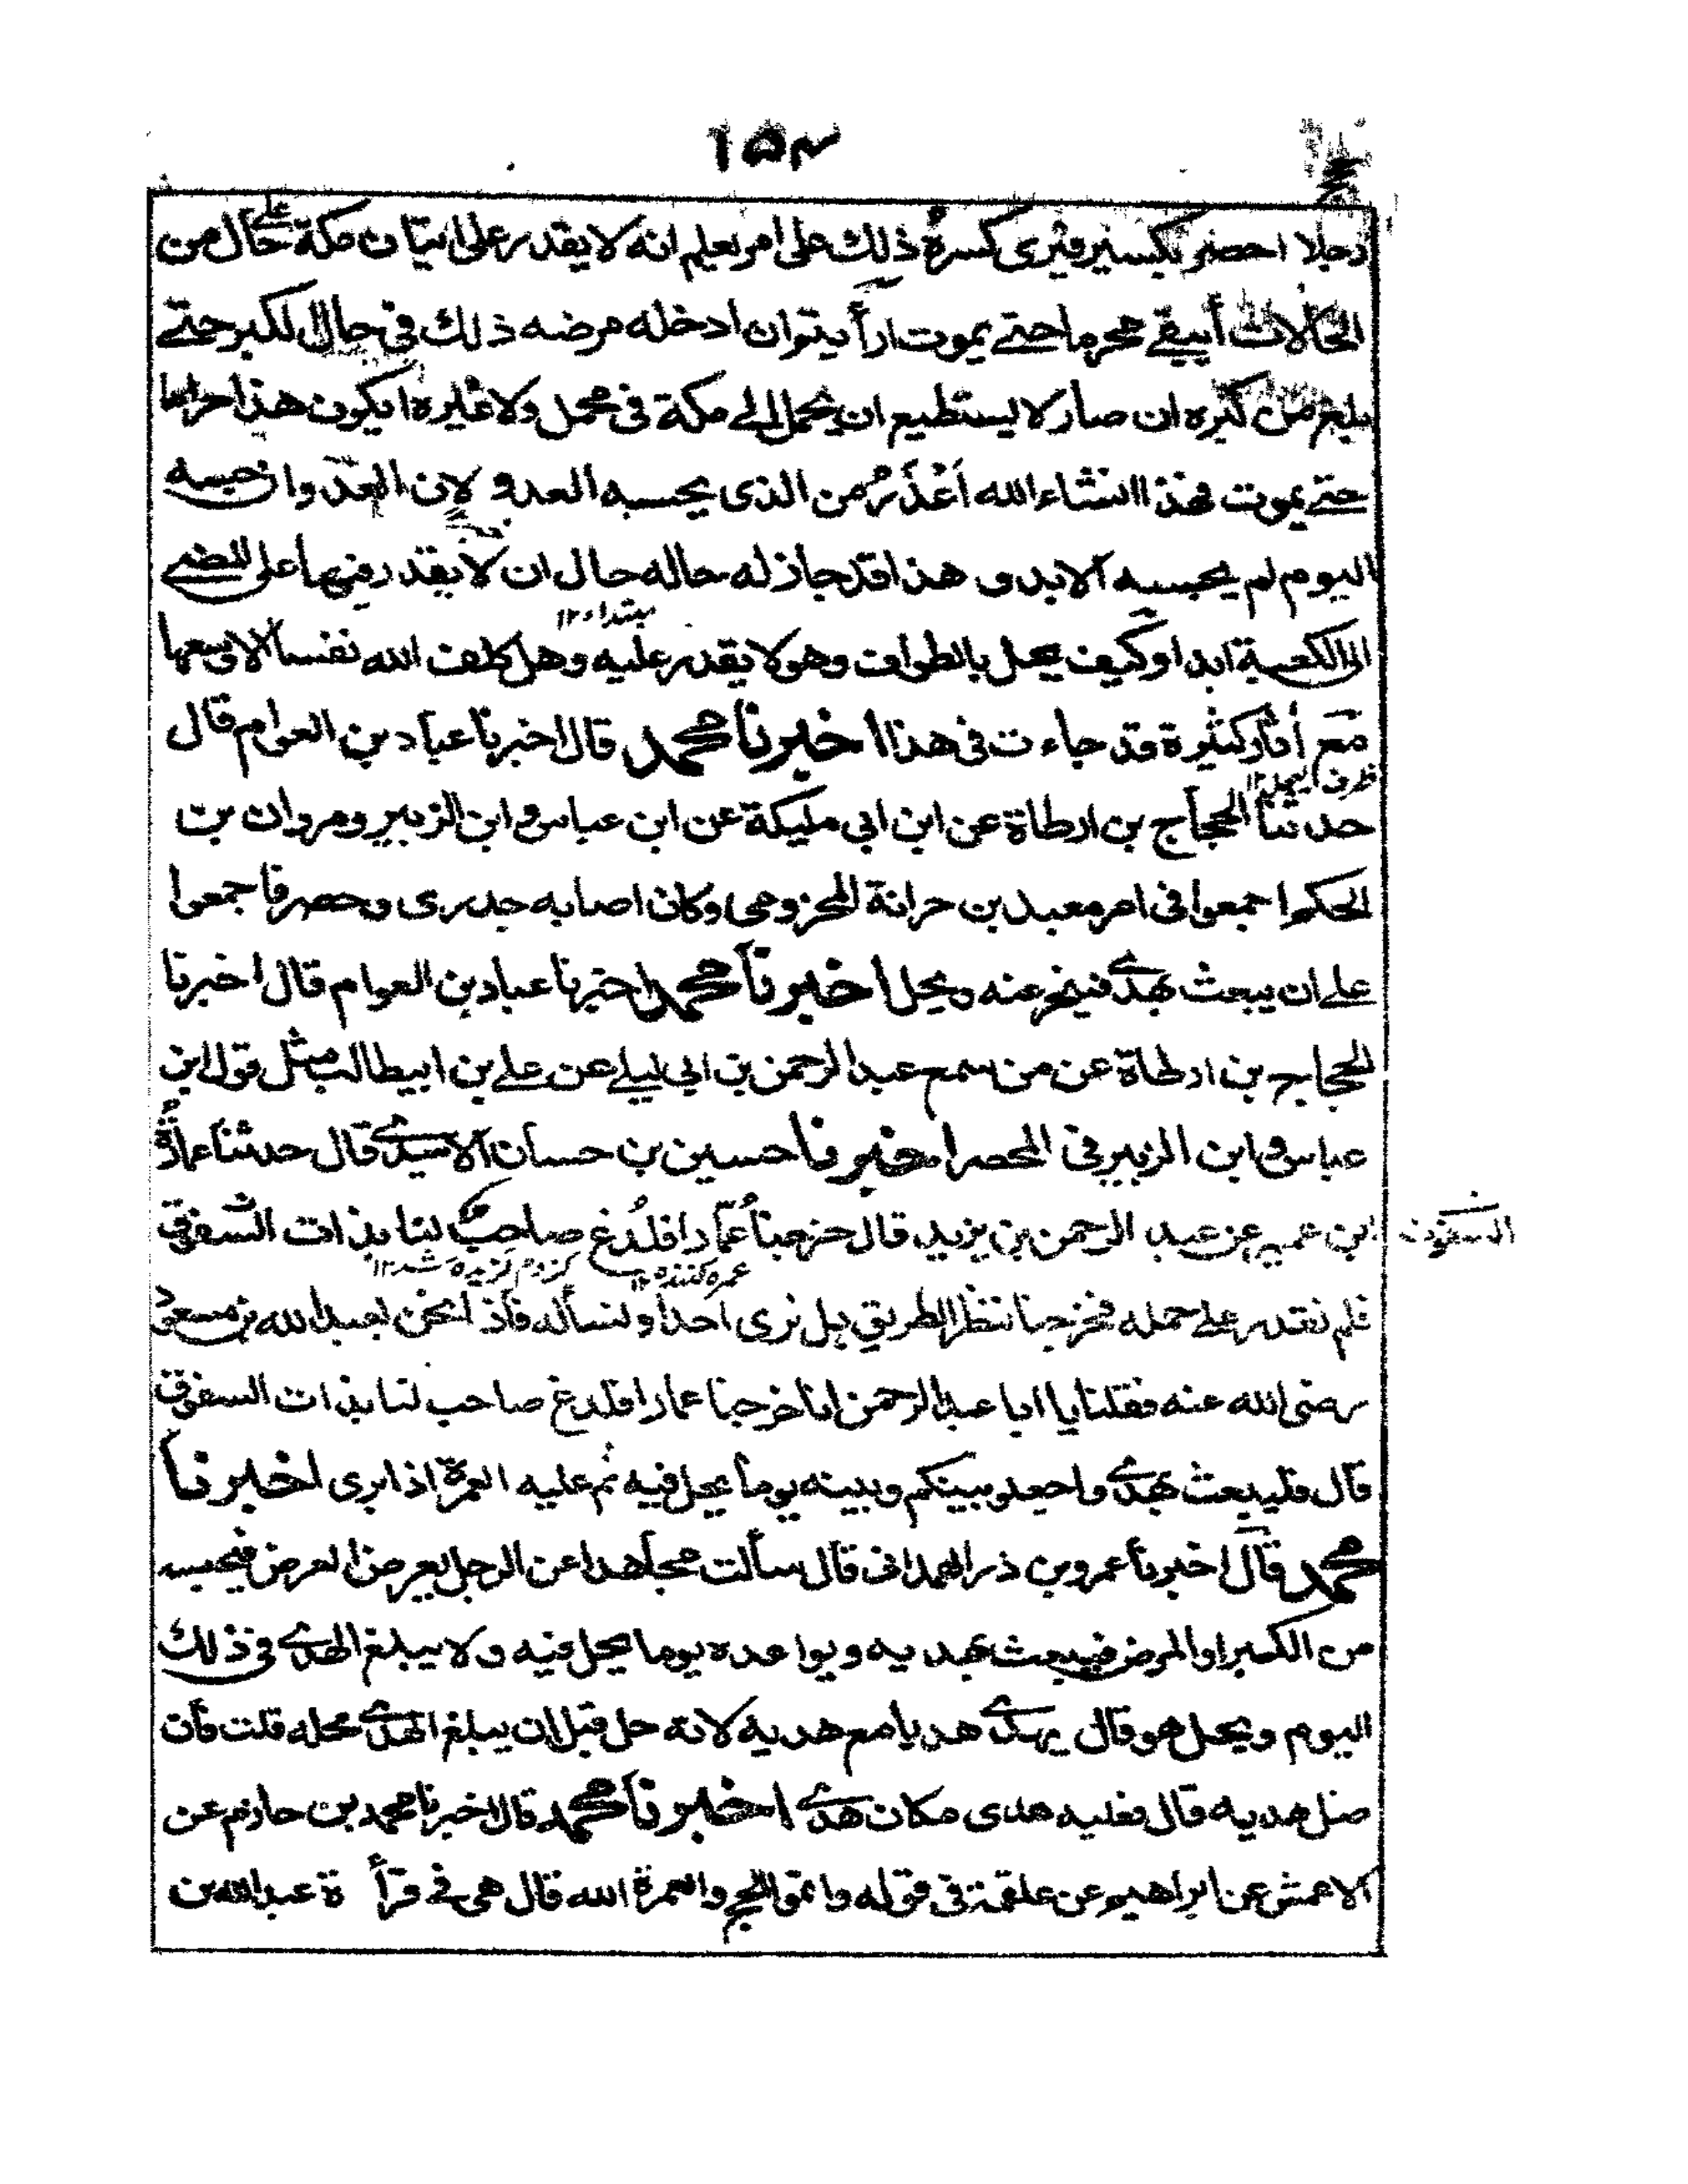 ١٥٣
رجلا احصر بكسير فيرى كسره ذلك على امر يعلم انه لا يقدر على اتيان مكة على حال من
الحالات أيبقى محرما حتے يموت ارأيتوان ادخله مرضه ذلك فى حال الكبر حتے
بلغ من كبره ان صار لا يستطيع ان يحمل الى مكة فى محمل ولا غيره ايكون هذا حراما
حتے يموت فهذا انشاء الله أعْذَرُ من الذى يحبسه العدو لان العدو ان حبسه
اليوم لم يحبسه الابد و هذا قد جاز له حاله حال ان لا يقدر فيها على المضے
مبتداء ١٢
الى الكعبة ابدا وكيف يحل بالطواف وهو لا يقدر عليه وهل كلف الله نفسا الا وسعها
مع أثار كثيرة قد جاءت فى هذا اخبرنا محمد قال اخبرنا عباد بن العوام قال
حدثنا الحجاج بن ارطاة عن ابن ابى مليكة عن ابن عباس و ابن الزبير ومروان بن
الحكم اجمعوا فى امر معبد بن حرانة المخزومى وكان اصابه جدرى وحصر فاجمعوا
علے ان يبعث بهدے فينحر عنه ويحل اخبرنا محمد اخبرنا عباد بن العوام قال اخبرنا
الحجاج بن ارطاة عن من سمع عبد الرحمن بن ابى ليلے عن علے بن ابيطالب مثل قول ابن
عباس و ابن الزبير فى المحصر اخبرنا حسين بن حسان الاسيدے قال حدثنا عمارة
ابن عمير عن عبد الرحمن بن يزيد قال خرجنا عُمّارا فلُدغ صاحب لنا بذات الشفوق
عمره كننده ١٢ كزدم گزيده شد ١٢
فلم نقدر علے حمله فخرجنا ننظر الطريق هل نرى احدا ولنسأله فاذا نحن بعبد الله بن مسعود
رضى الله عنه فقلنا يا ابا عبد الرحمن انا خرجنا عمارا فلدغ صاحب لنا بذات السفوق
قال فليبعث بهدے واجعلو بينكم وبينه يوما يحل فيه ثم عليه العمرة اذا برى اخبرنا
محمد قال اخبرنا عمرو بن ذر الهمدانى قال سألت مجاهدا عن الرجل يعرض العرض فيحبسه
من الكسر او المرض فيبعث بهديه ويواعده يوما يحل فيه ولا يبلغ الهدے فى ذلك
اليوم ويحل هو قال يهدے هديا مع هديه لانه حل قبل ان يبلغ الهدے محله قلت فأن
ضل هديه قال فعليه هدى مكان هدے اخبرنا محمد قال اخبرنا محمد بن حازم عن
الاعمش عن ابراهيم عن علقمة فى قوله واتموا الحج والعمرة الله قال هى فے قرأة عبد الله بن